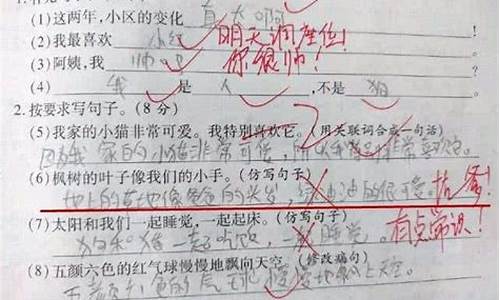 (1)这两年,小区的变化 真大啊
(2)我最喜欢 小红 明天调座位!
(3)阿姨,我 帅吧 你很帅!
(4) 我 是 人 ,不是 狗
2.按要求写句子。(8分)
(5)我家的小猫非常可爱。我特别喜欢它。(用关联词合成一句话)
因为我家的小猫非常可爱,所以我 非常喜欢它。
(6)枫树的叶子像我们的小手。(仿写句子)
地上的草地像爸爸的头发,绿油油的很 。抗爹!
(7)太阳和我们一起睡觉,一起起床。(仿写句子)
狗和猪一起吃饭,一起睡觉。有点常识!
(8)五颜六色的红气球慢慢地飘向天空。(修改病句)
五颜六色的气球慢慢地飘上天空。